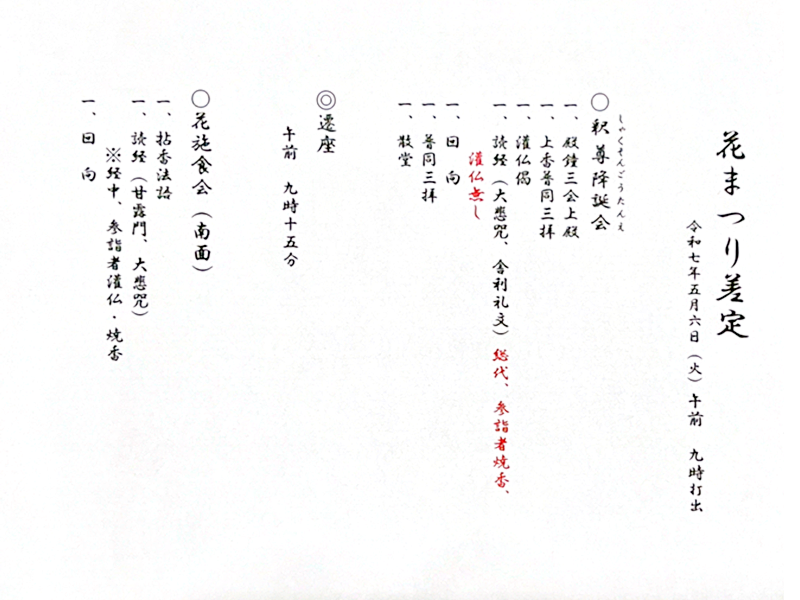 花まつり差定
令和七年五月六日（火）午前　九時打出
しゃくそんごうたんえ
〇釈尊降誕会
一、殿鐘三会上殿
一、上香普同三拝
一、灌仏偈
一、読経（大悲咒、舎利礼文）総代、参詣者焼香、
灌仏無し
一、回　向
一、普同三拝
一、散堂
◎遷座
午前　九時十五分
〇花施食会（南面）
一、拈香法語
一、読経（甘露門、大悲咒）
※経中、参詣者灌仏・焼香
一、回　向